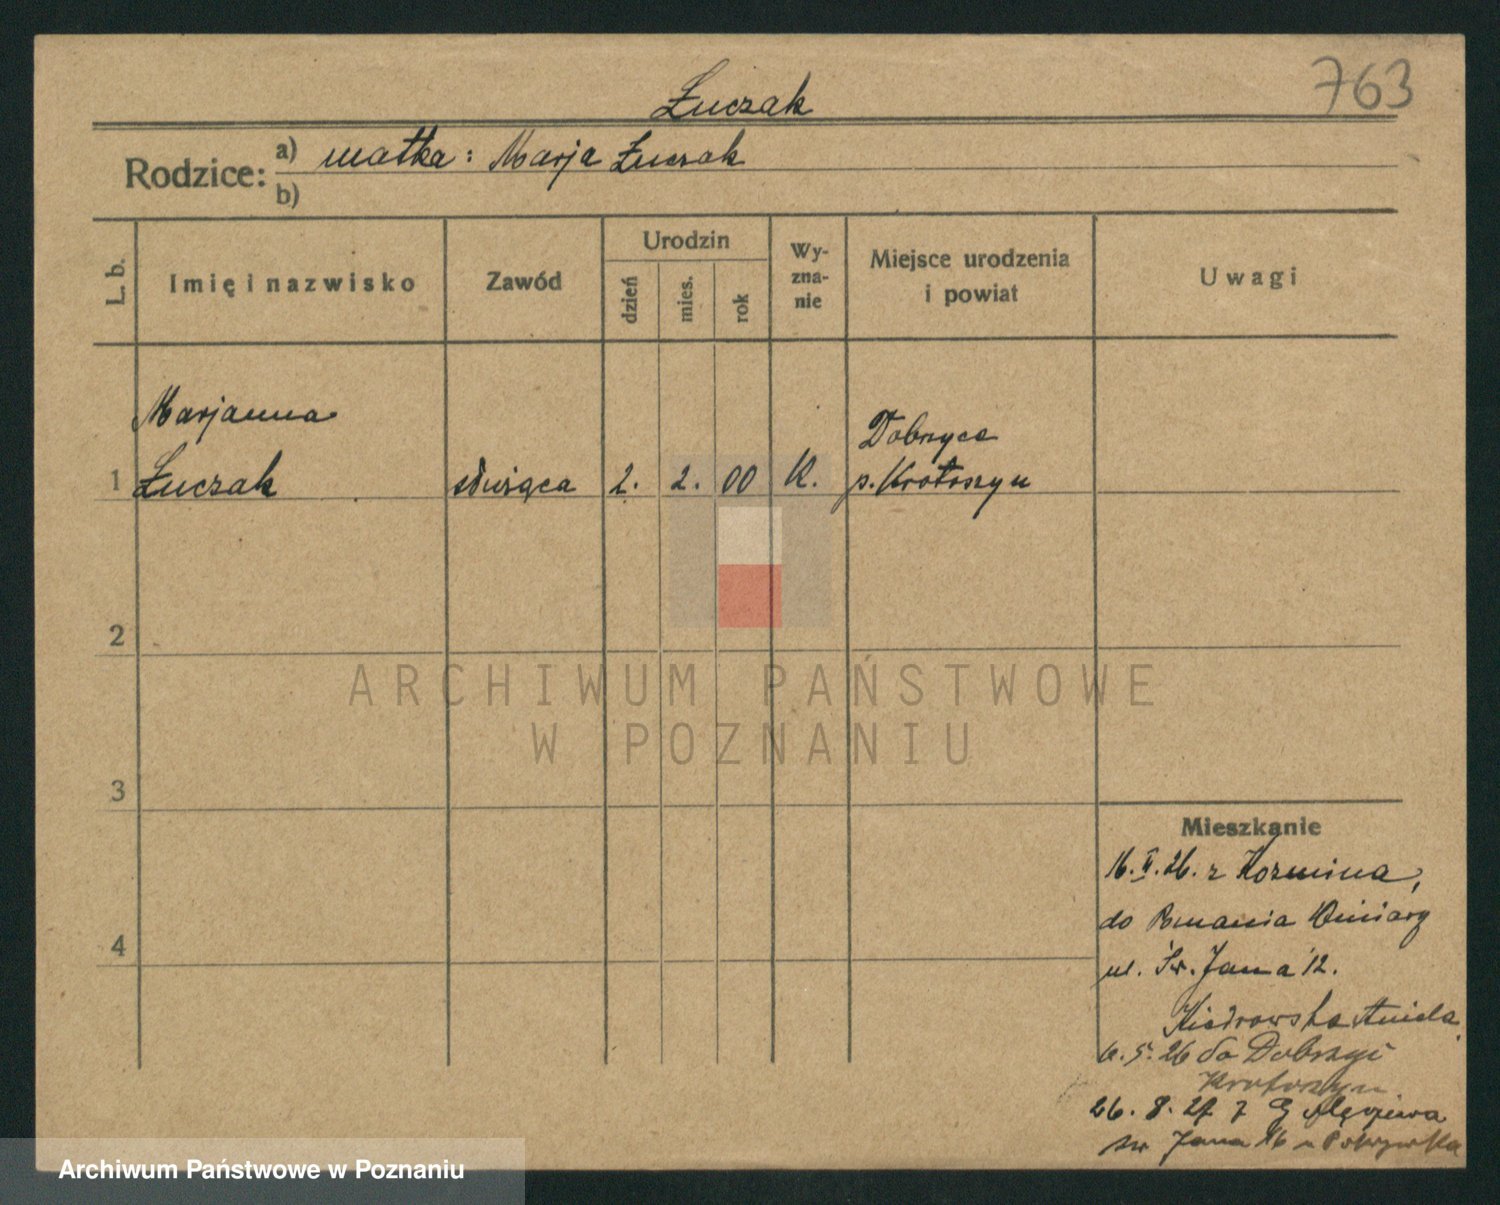 Łuczak
763
Rodzice:
a) matka: Marja Łuczak
b)
L. b.
Imię i nazwisko
Zawód
Urodzin
dzień
mies.
rok
Wy-
zna-
nie
Miejsce urodzenia
i powiat
Uwagi
Marjanna
Dobrzyca
1 Łuczak służąca 2. 2. 00 K. p. Krotoszyn
2
ARCHIWUM PAŃSTWOWE
W POZNANIU
3
Mieszkanie
16. II. 26. z Kozmina,
do Poznania Winiary
4
ul. Św. Jana 12.
Kiedrowska Aniela
5. 26 do Dobrzyc
Krotoszyn
26. 8. 27 z
św Jana 16 u
Archiwum Państwowe w Poznaniu